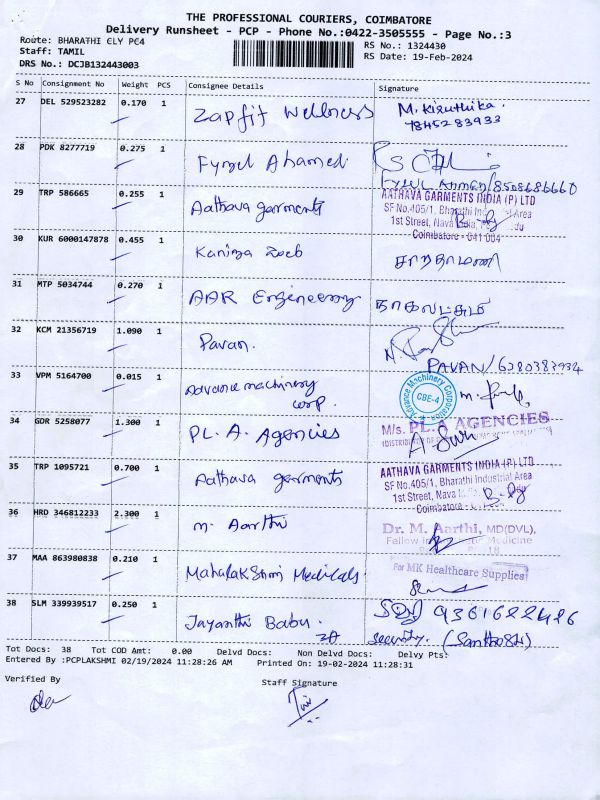 THE PROFESSIONAL COURIERS, COIMBATORE
Delivery Runsheet - PCP - Phone No.:0422-3505555 - Page No.:3
Route: BHARATHI CLY PC4
RS No.: 1324430
Staff: TAMIL
RS Date: 19-Feb-2024
DRS No.: DCJB132443003
S No Consignment No Weight PCS Consignee Details Signature
27 DEL 529523282 0.170 1 Zapfit Wellness M. Kiruthika.
7845283933
28 PDK 8277719 0.275 1 Fyzul Ahamed
FYZUL AHMED/8508686660
29 TRP 586665 0.255 1 Aathava garments AATHAVA GARMENTS INDIA (P) LTD
SF No.405/1, Bharathi Industrial Area
1st Street, Nava India,
Coimbatore - 641 004
30 KUR 6000147878 0.455 1 Kaniya சாந்தாமணி
31 MTP 5034744 0.270 1 AAR Engineering நாகலட்சுமி
32 KCM 21356719 1.090 1 Pavan.
PAVAN/6380383934
33 VPM 5164700 0.015 1 Advance machinery Corp. Advance Machinery Corporation CBE-4
34 GDR 5258077 1.300 1 PL. A. Agencies M/s. PL. A AGENCIES
35 TRP 1095721 0.700 1 Aathava garments AATHAVA GARMENTS INDIA (P) LTD
SF No.405/1, Bharathi Industrial Area
1st Street, Nava
Coimbatore
36 HRD 346812233 2.300 1 M. Aarthi Dr. M. Aarthi, MD(DVL),
Fellow in Medicine
37 MAA 863980838 0.210 1 Mahalakshmi Medicals. For MK Healthcare Supplies
38 SLM 339939517 0.250 1 Jayanthi Babu. 9361622426
security. (Santhosh)
Tot Docs: 38 Tot COD Amt: 0.00 Delvd Docs: Non Delvd Docs: Delvy Pts:
Entered By :PCPLAKSHMI 02/19/2024 11:28:26 AM Printed On: 19-02-2024 11:28:31
Verified By Staff Signature